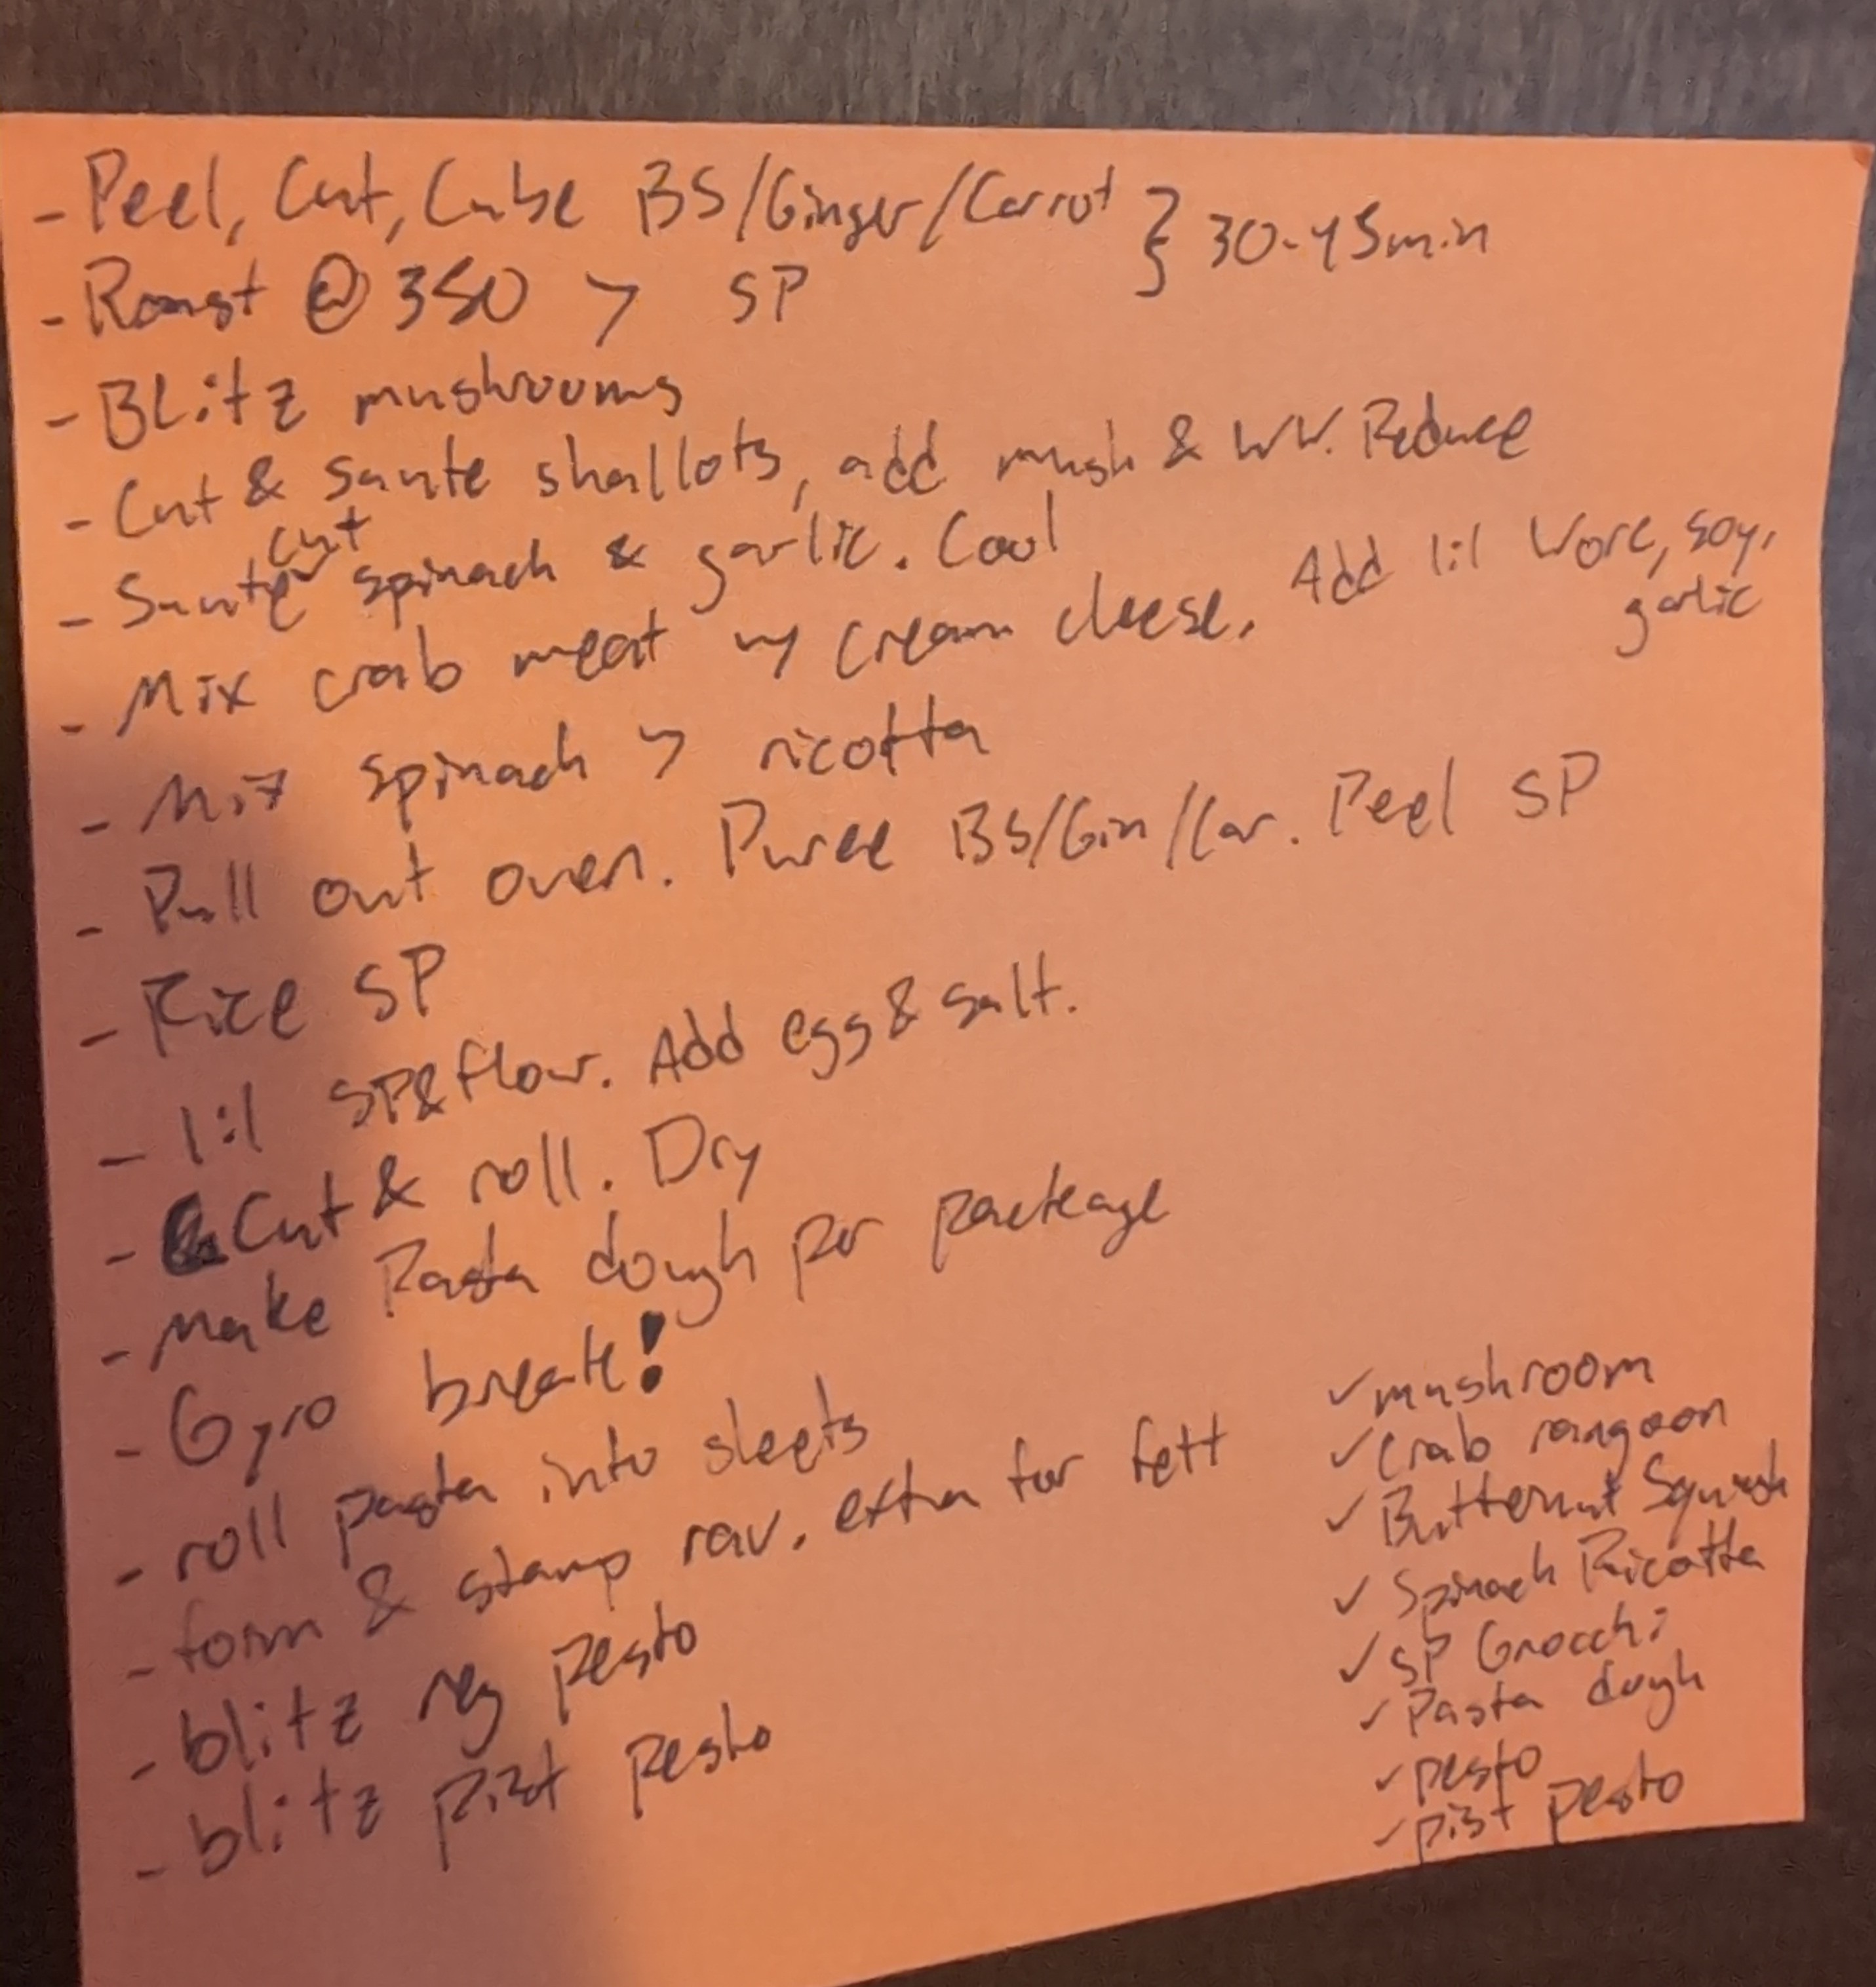 - Peel, Cut, Cube BS/Ginger/Carrot } 30-45min
- Roast @ 350 > SP
- Blitz mushrooms
- Cut & Saute shallots, add mush & WW. Reduce
- Saute cut spinach & garlic. Cool
- Mix crab meat w/ cream cheese. Add lil Worc, soy, garlic
- Mix spinach > ricotta
- Pull out oven. Puree BS/Gin/Car. Peel SP
- Rice SP
- 1:1 SP & flour. Add egg & salt.
- Cut & roll. Dry
- Make Pasta dough per package
- Gyro break!
- roll pasta into sheets
- form & stamp rav. extra for fett
- blitz reg pesto
- blitz pist pesto
✓ mushroom
✓ Crab rangoon
✓ Butternut Squash
✓ Spinach Ricotta
✓ SP Gnocchi
✓ Pasta dough
✓ pesto
✓ pist pesto